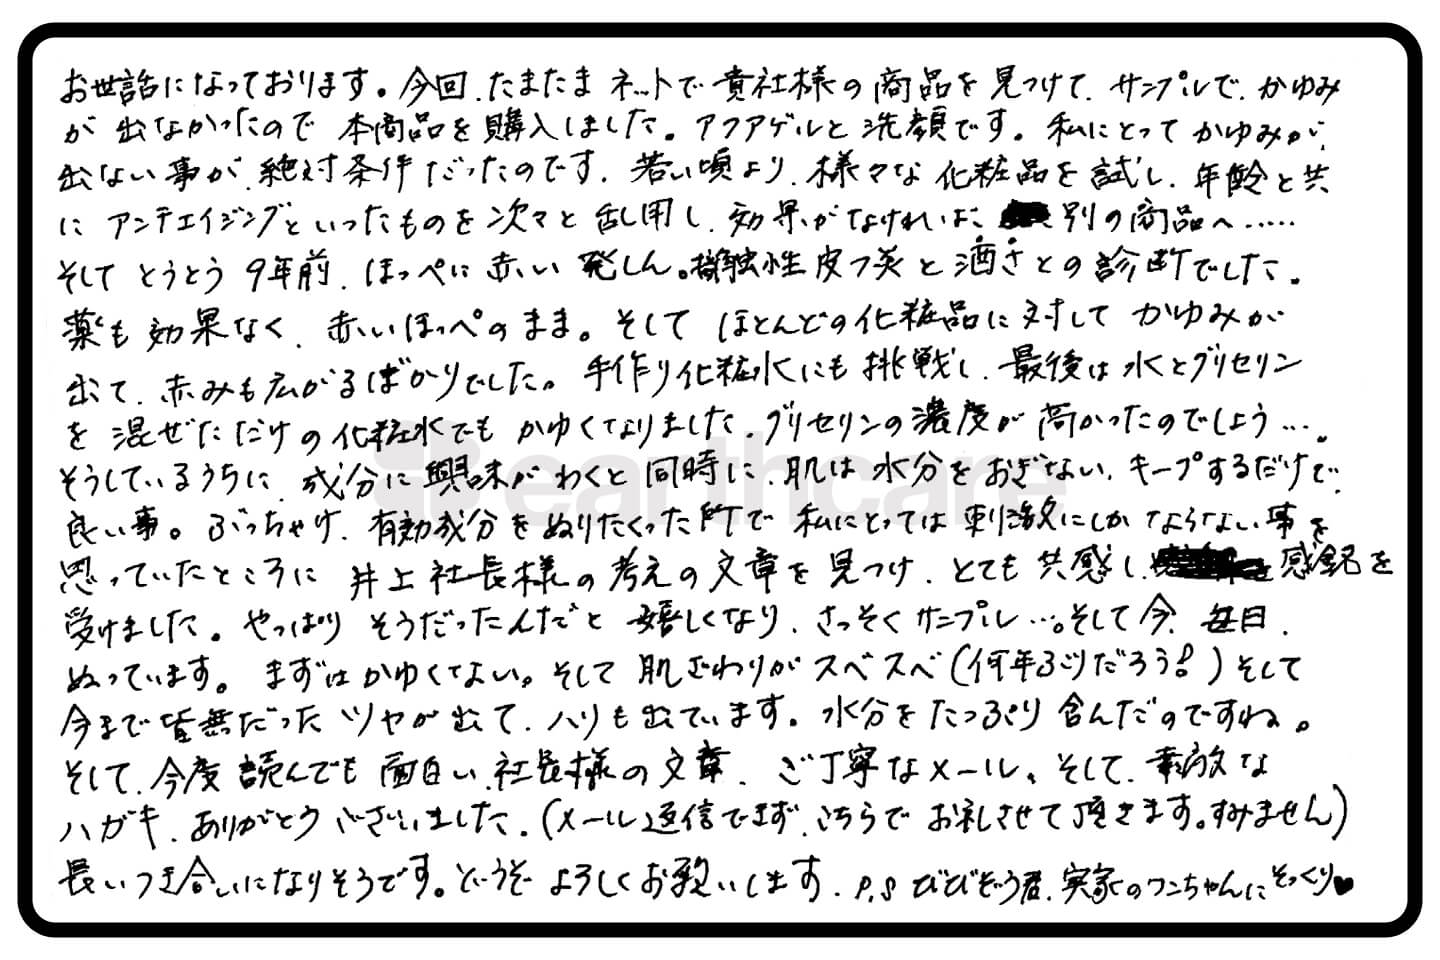 お世話になっております。今回、たまたまネットで貴社様の商品を見つけて、サンプルで、かゆみ
が出なかったので本商品を購入しました。アクアゲルと洗顔です。私にとってかゆみが、
出ない事が、絶対条件だったのです。若い頃より、様々な化粧品を試し、年齢と共
にアンチエイジングといったものを次々と乱用し、効果がなければ別の商品へ……
そしてとうとう9年前、ほっぺに赤い発しん。接触性皮フ炎と酒さとの診断でした。
薬も効果なく、赤いほっぺのまま。そしてほとんどの化粧品に対してかゆみが
出て、赤みも広がるばかりでした。手作り化粧水にも挑戦し、最後は水とグリセリン
を混ぜただけの化粧水でもかゆくなりました。グリセリンの濃度が高かったのでしょう…。
そうしているうちに、成分に興味がわくと同時に、肌は水分をおぎない、キープするだけで、
良い事。ぶっちゃけ、有効成分をぬりたくった所で私にとっては刺激にしかならない事を
思っていたところに井上社長様の考えの文章を見つけ、とても共感し、感銘を
受けました。やっぱりそうだったんだと嬉しくなり、さっそくサンプル…。そして今、毎日、
ぬっています。まずはかゆくない。そして肌ざわりがスベスベ(何年ぶりだろう!)そして
今まで皆無だったツヤが出て、ハリも出ています。水分をたっぷり含んだのですね。
そして、今度読んでも面白い、社長様の文章、ご丁寧なメール、そして、素敵な
ハガキ、ありがとうございました。(メール返信できず、こちらでお礼させて頂きます。すみません)
長いつき合いになりそうです。どうぞよろしくお願いします。P.S びびぞう君、実家のワンちゃんにそっくり♥
earthcare